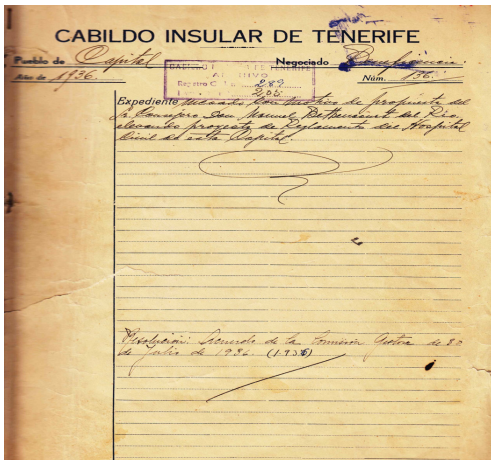 CABILDO INSULAR DE TENERIFE
Pueblo de Capital Negociado Beneficencia.
Año de 1936. Núm. 136.
CABILDO INSULAR DE TENERIFE
ARCHIVO
Registro 289
205
Expediente incoado con motivo de propuesta del
Sr. Consejero Don Manuel Bethencourt del Río,
elevando proyecto de Reglamento del Hospital
Civil de esta Capital.
Resolución: Acuerdo de la Comisión Gestora de 80
de Julio de 1936. (1.936)